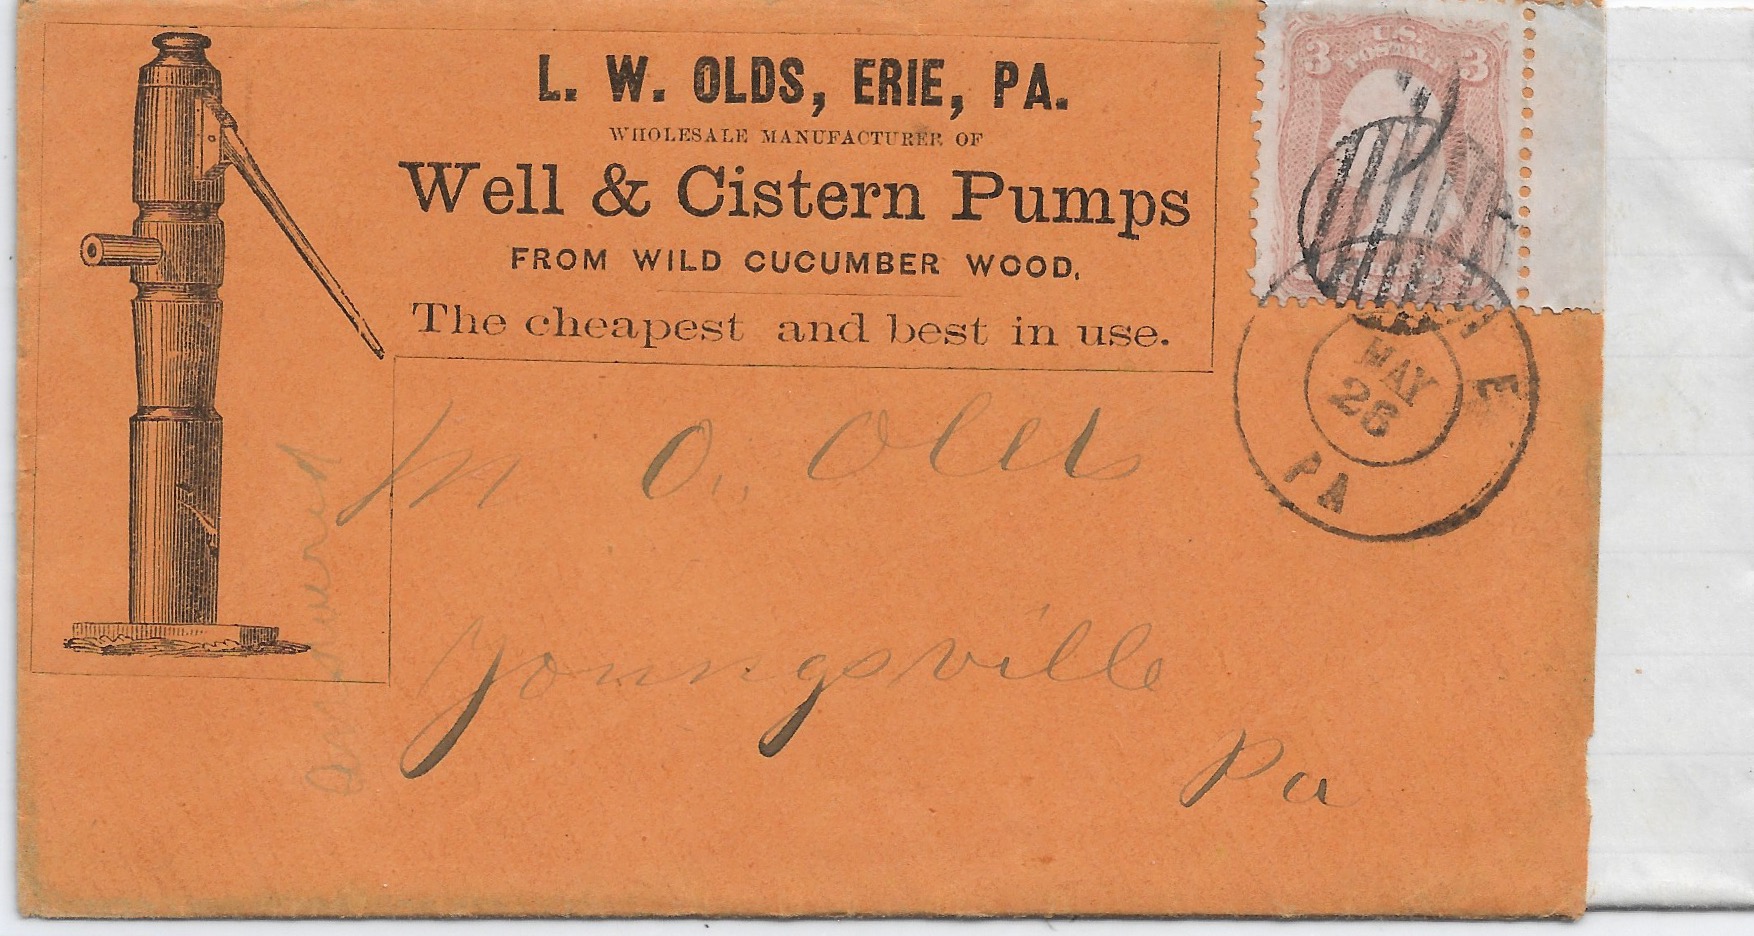 L. W. OLDS, ERIE, PA.
WHOLESALE MANUFACTURER OF
Well & Cistern Pumps
FROM WILD CUCUMBER WOOD.
The cheapest and best in use.
3 U.S. 3
POSTAGE
E
MAY
26
PA
M O. Olds
Youngsville
Pa
answered